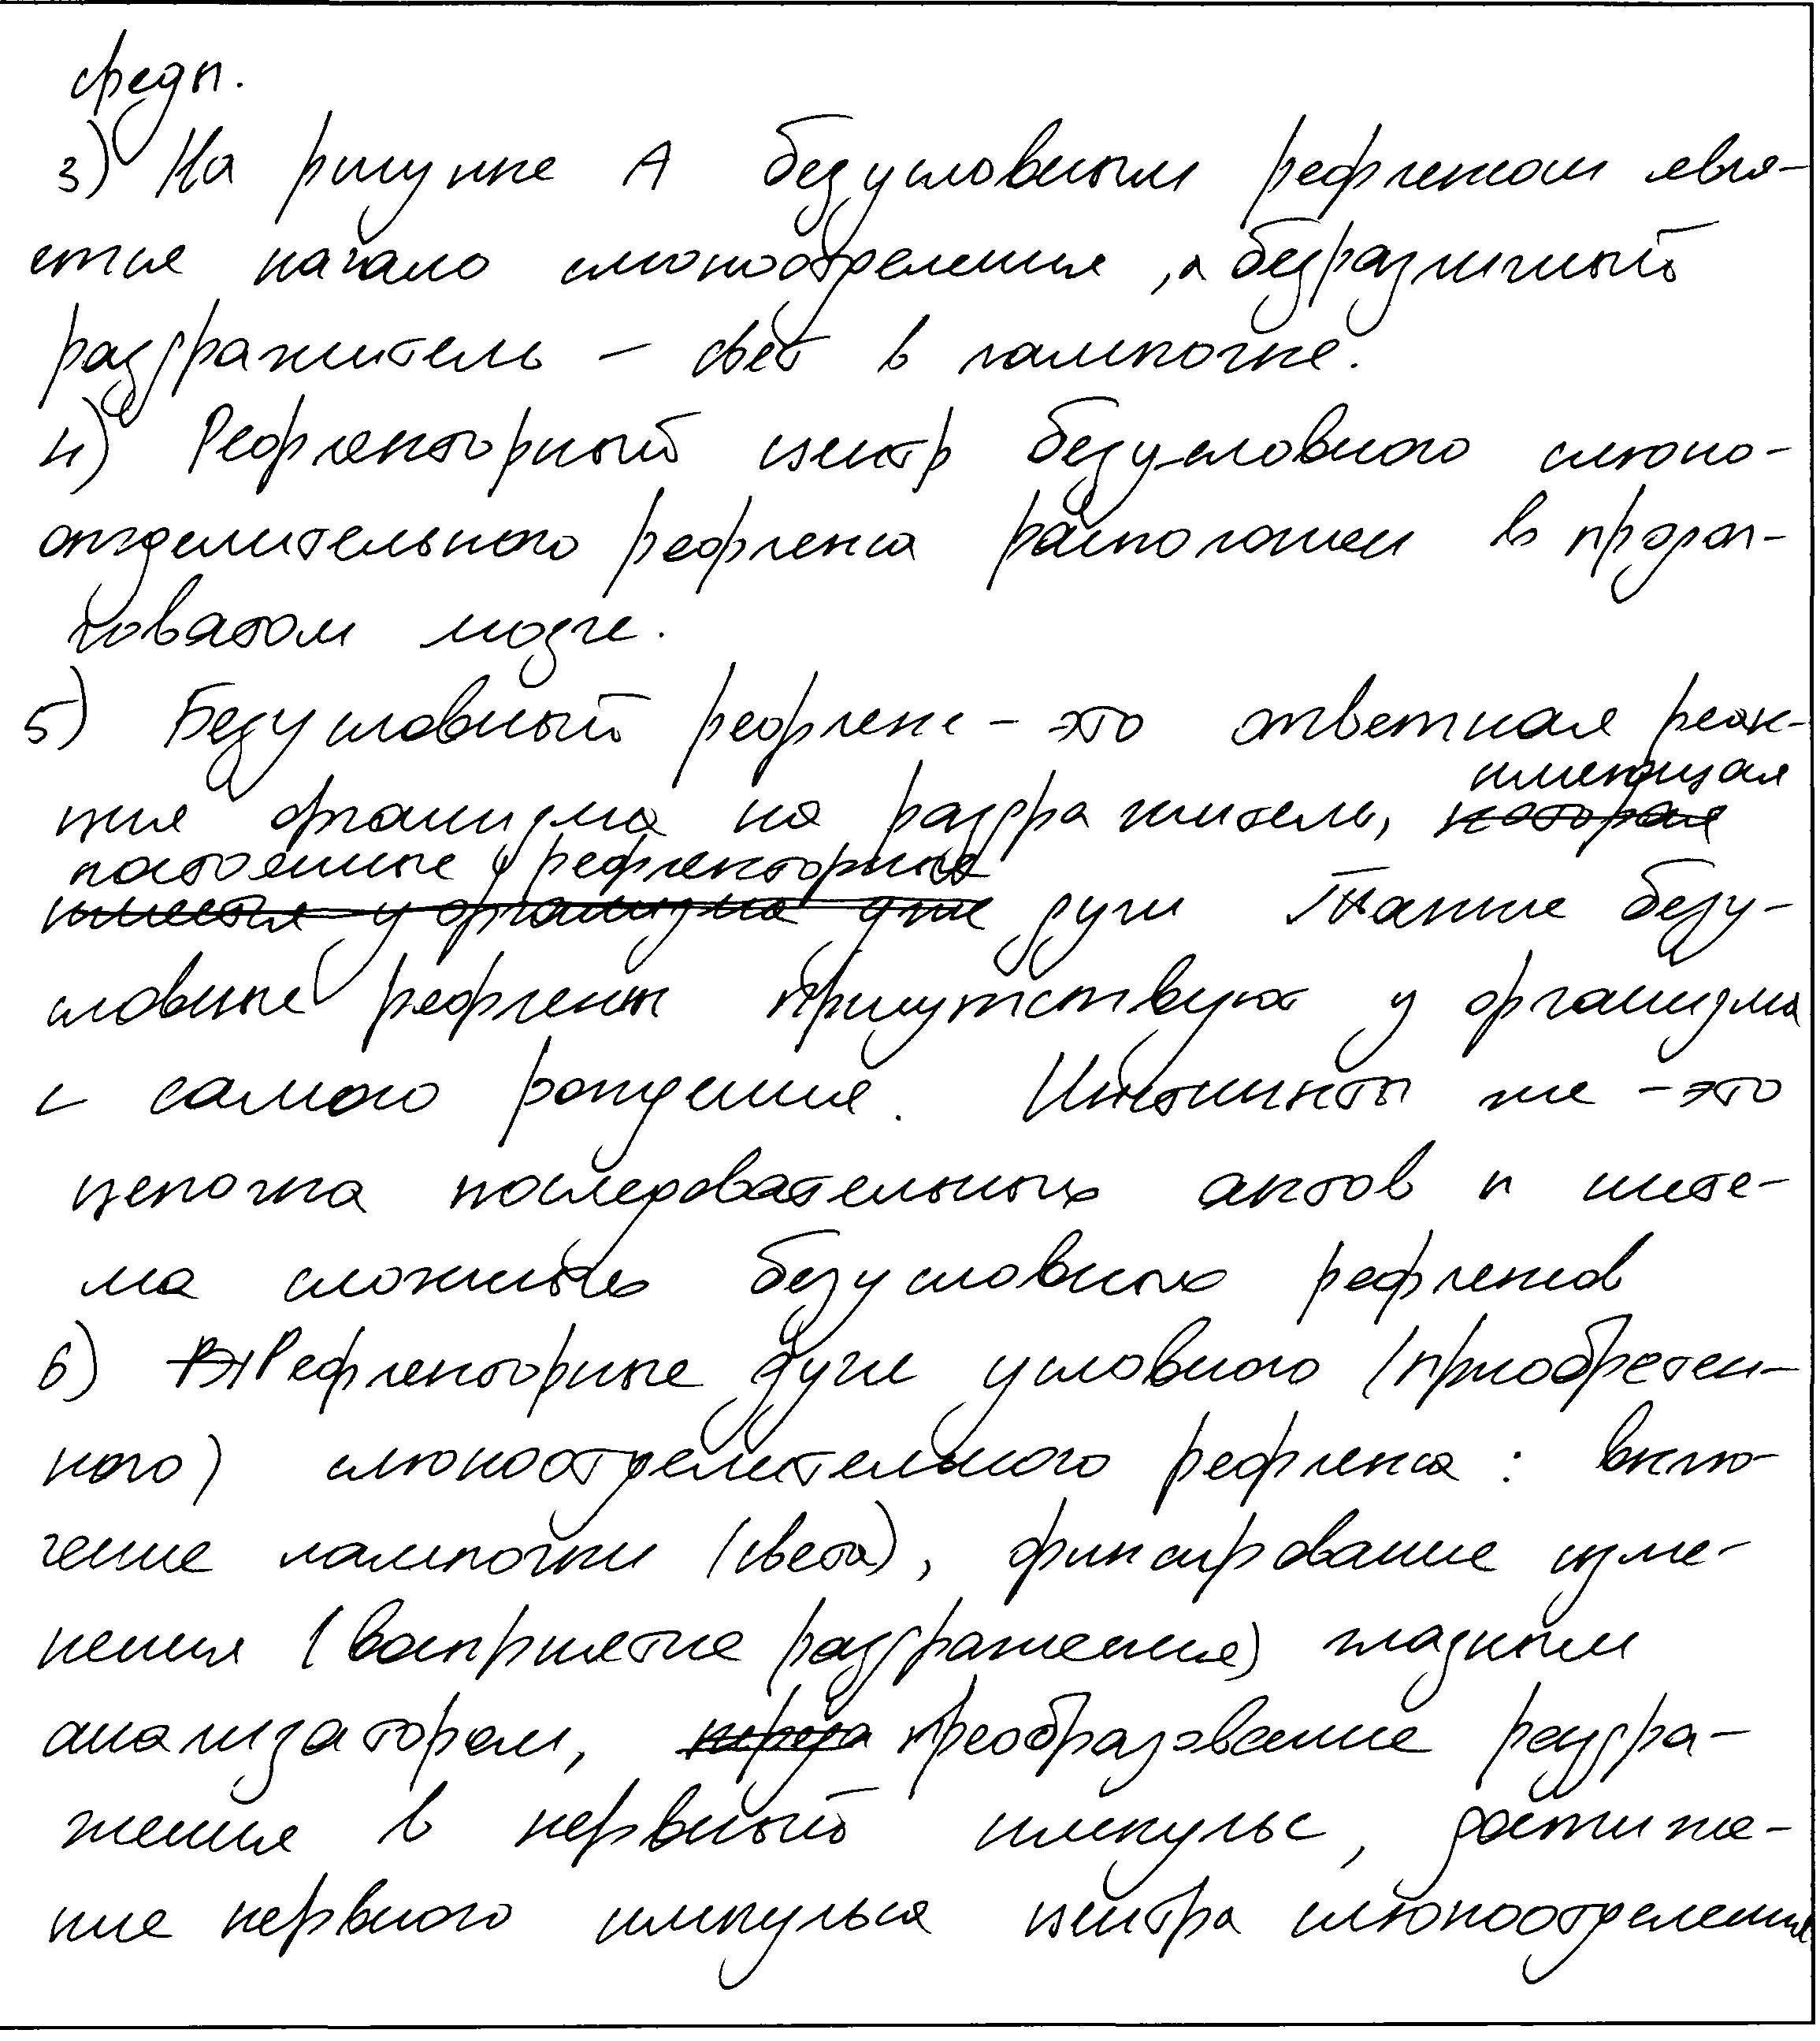 среды.
3) На рисунке А безусловным рефлексом явля-
ется начало слюноотделения, а безразличный
раздражитель – свет в лампочке.
4) Рефлекторный центр безусловного слюно-
отделительного рефлекса расположен в продол-
говатом мозге.
5) Безусловный рефлекс – это ответная реак-
имеющая
ция организма на раздражитель, которая
постоянные рефлекторные
имеется у организма уже дуги Такие безу-
словные рефлексы присутствуют у организма
с самого рождения. Инстинкты же – это
цепочка последовательных актов и систе-
ма сложных безусловных рефлексов
6) Рефлекторные дуги условного (приобретен-
ного) слюноотделительного рефлекса: вклю-
чение лампочки (света), фиксирование изме-
нения (восприятие раздражения) глазным
анализатором, преобразование раздра-
жения в нервный импульс, достиже-
ние нервного импульса центра слюноотделения